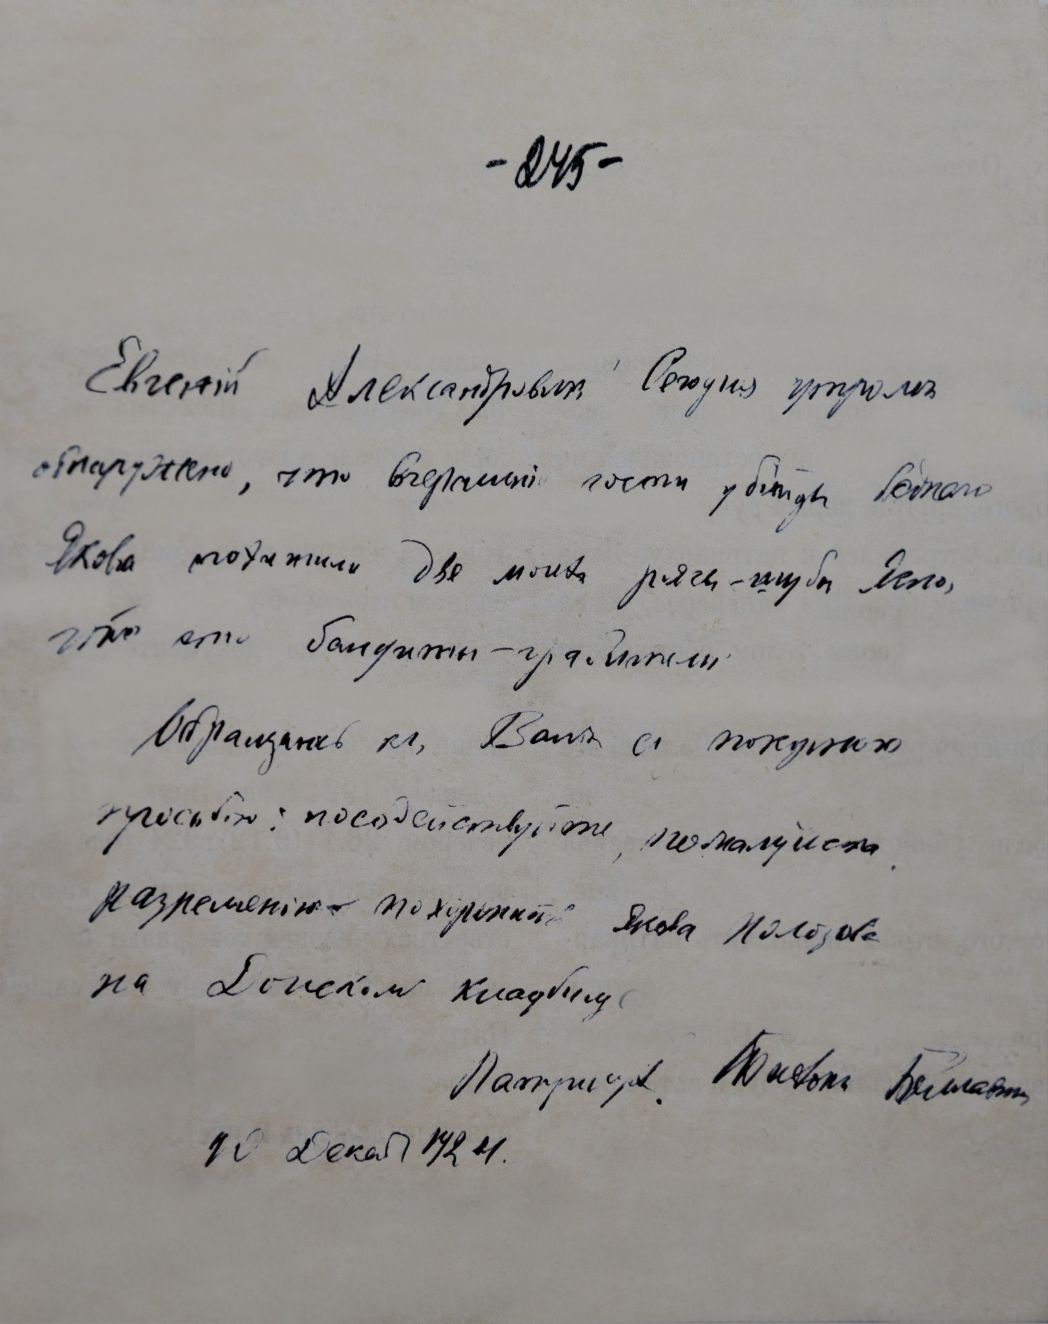 -245-
Евгеній Александровичъ! Сегодня утромъ
обнаружено, что вчерашніе гости убійцы бѣднаго
Якова похитили двѣ моихъ рясы-шубы Ясно,
что это бандиты-грабители
Обращаюсь къ Вамъ съ покорною
просьбою: посодѣйствуйте, пожалуйста
разрешенію похоронить Якова Полозова
на Донскомъ кладбищѣ
Патріархъ Тихонъ
10 Декаб 1924.